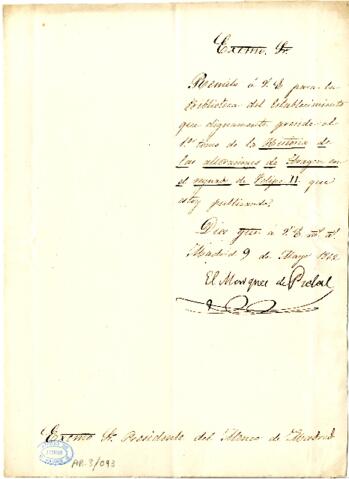 Excmo. Sr.
Remito á V. E. para la
Biblioteca del establecimiento
que dignamente preside el
1er tomo de la Historia de
las alteraciones de Aragon en
el reynado de Felipe II que
estoy publicando.
Dios gue á V. E. ms. as.
Madrid 9 de Mayo
El Marques de Pidal
Excmo Sr. Presidente del Ateneo de Madrid
AR.3/093